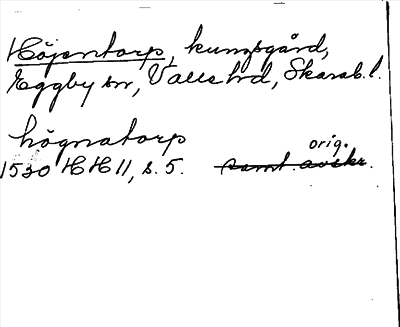 Höjentorp, kungsgård,
Eggby sn, Valle hd, Skarab. l.
högnatorp
orig.
1530 HH 11, s. 5. samt. avskr.